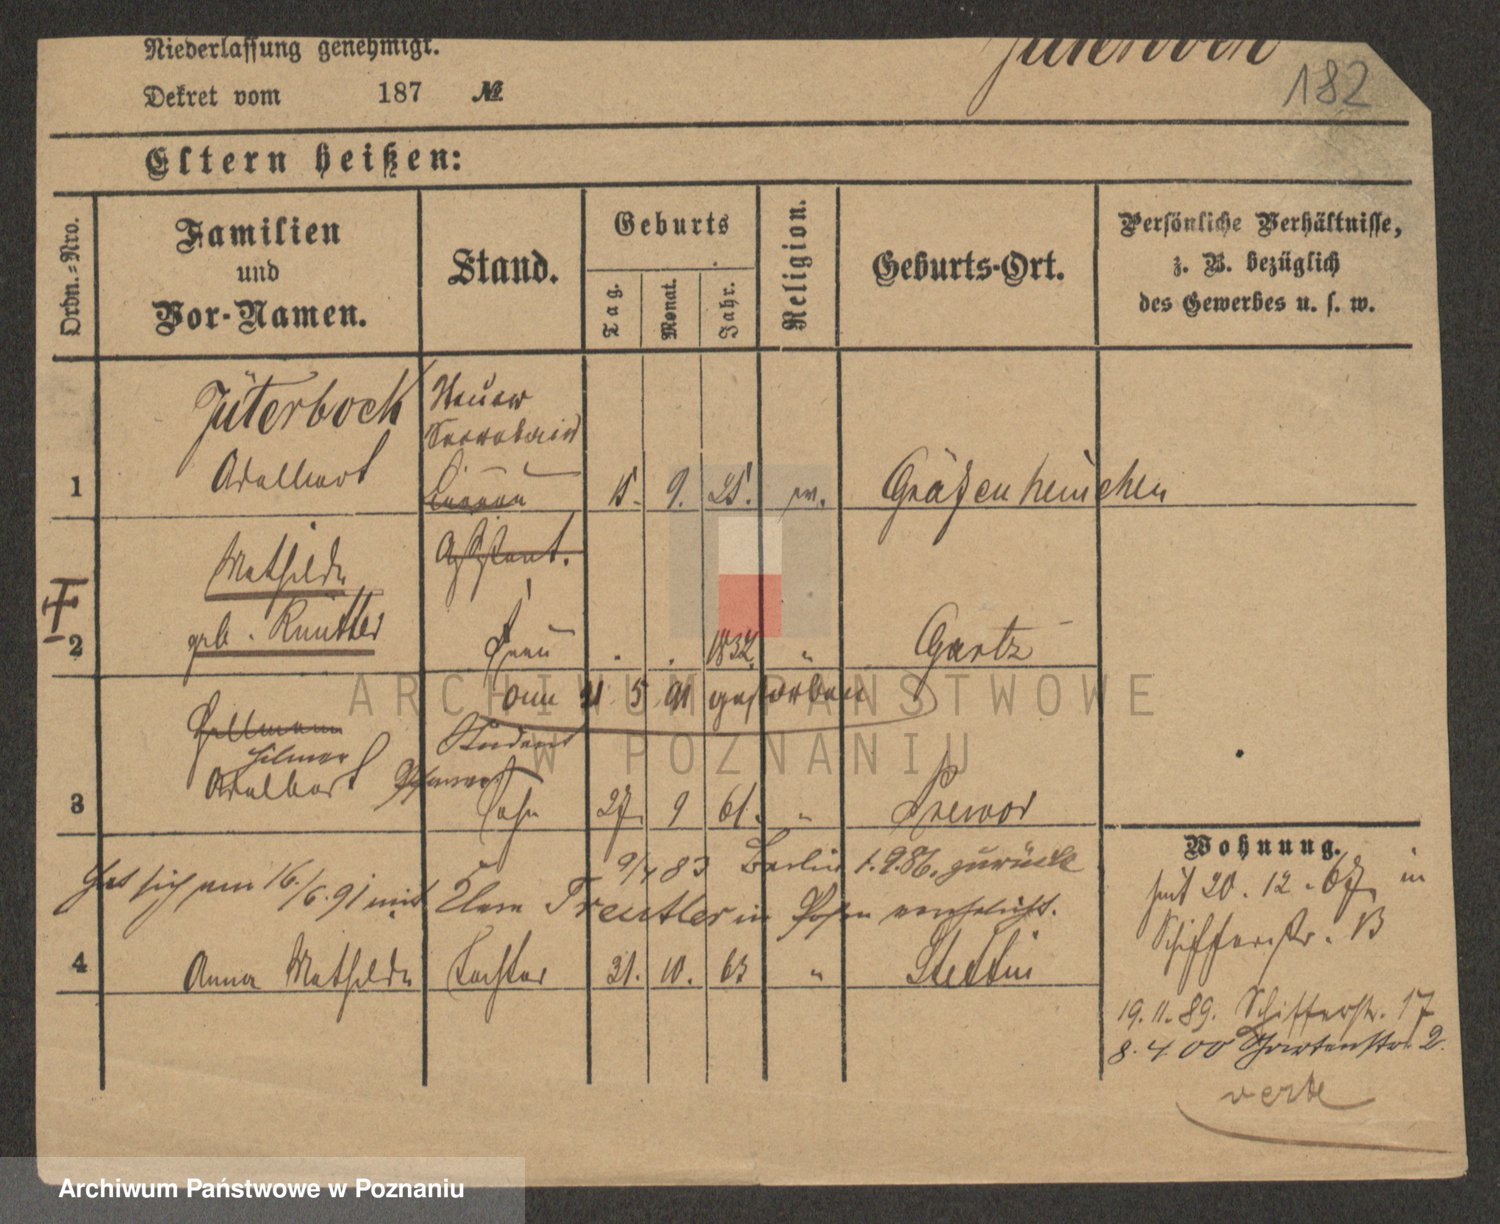 Niederlassung genehmigt.
Dekret vom 187 №
Jüterbock
182
Eltern heißen:
Ordn.=Nro.
Familien
und
Vor-Namen.
Stand.
Geburts
Tag.
Monat.
Jahr.
Religion.
Geburts-Ort.
Persönliche Verhältnisse,
z. B. bezüglich
des Gewerbes u. s. w.
Jüterbock
1 Adalbert 15. 9. 25. ev. Gräfenheinchen
Assistent.
Mathilde
geb.
2 Frau 1832. " Gartz
am 5 91 gestorben
Hilmar
Student
Adalbert
3 Sohn 27. 9 61. "
9/4 83 Berlin 1.9.86. zurück
Hat sich am 16./6.91 mit Treutler in Posen verehelicht.
4 Anna Mathilde Tochter 31. 10. 63 " Stettin
Wohnung.
seit 20. 12. 67. in
Schifferstr. 13
19. 11. 89. Schifferstr. 17
8. 4 00 Gartenstr. 2.
verte
ARCHIWUM PAŃSTWOWE
W POZNANIU
Archiwum Państwowe w Poznaniu